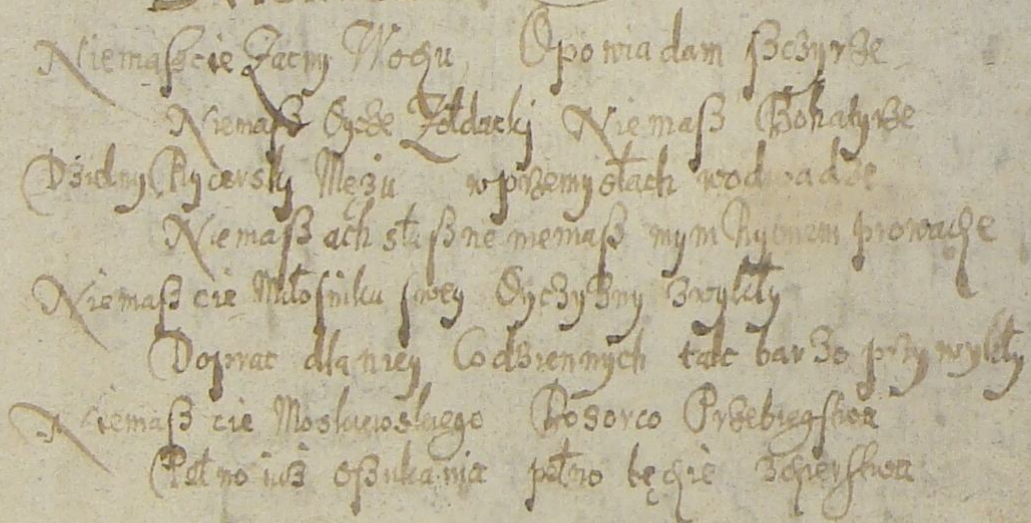 Niemaßcie Zacny Wodzu Opowiadam ßczyrze
Niemaß Oycze Żołdacky Niemaß Bohatyrze
Dzielny Rycersky Mężu w przemysłach w odwadze
Niemaß ach słußne niemaß mym Rymem prowadzę
Niemaß cie Miłosniku swey Oyczyzny zwykły
Do prac dla niey Codziennych tak barzo przywykły
Niemaß cie Moskiewskiego Pogorco Przebiegstwa
Pełno iuż oßukania pełno będzie